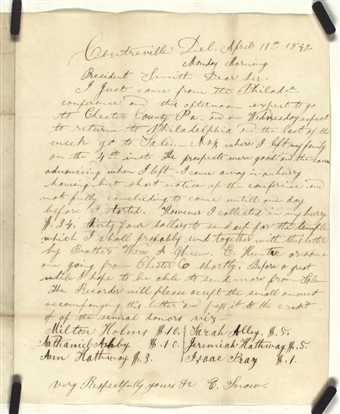 Centreville Del. April 11th 1842
Monday Morning
President Smith Dear Sir.
I Just came from the Philada
conference and this afternoon expect to go
to Chester County Pa. and on Wednesday expect
to return to Philadelphia in the last of the
week go to Salem where I left my family
on the 4th inst. The prospects were good and the cause
advancing when I left. I came away in a hurry
having but short notice of the conference and
not fully concluding to come until one day
before I started. However I collected in my hurry
$.34. thirty four dollars to send out for the temple
which I shall probably send together with this letter
by Brother E. Hunter or some
one going from Chester Co shortly. Before a great
while I hope to be able to send more from Salem
The Recorder will please accept the small amount
accompanying this letter and pass it to the credit
of of the several donors viz
Milton Holmes $.10. Sarah Alley. $.5.
Nathaniel Ashby $.10. Jeremiah Hathaway $.5.
Ann Hathaway $.3. Isaac $.1.
very Respectfully yours &c E. Snow